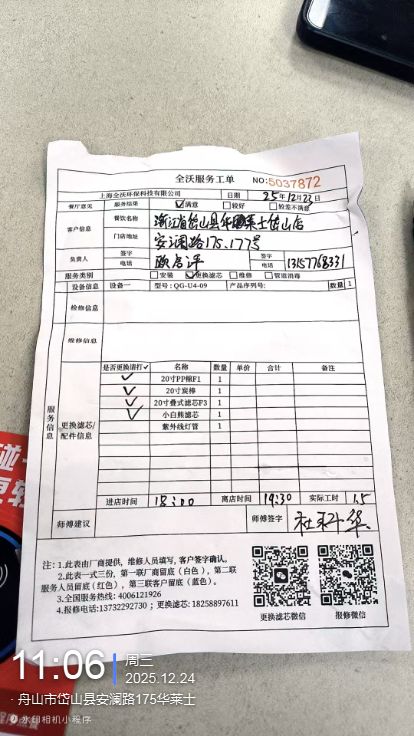 全沃服务工单 NO:5037872
上海全沃环保科技有限公司 日期 25年12月23日
餐厅意见 服务结果 ☑满意 □较好 □较差不满意
客户信息 餐饮名称 浙江省岱山县华莱士岱山店
门店地址 安澜路175.177号
负责人 签字 签字
电话 电话 13157768331
服务类别 □安装 ☑更换滤芯 □维修 □管道消毒
设备信息 设备一 型号:QG-U4-09 产品序列号: 数量 1
检修信息
维修信息
服务信息
更换滤芯/配件信息
是否更换请打✓ 名称 数量 单价 合计 备注
✓ 20寸PP棉F1 1
✓ 20寸炭棒 1
✓ 20寸叠式滤芯F3 1
✓ 小白熊滤芯 1
紫外线灯管 1
进店时间 18:00 离店时间 19:30 实际工时 1.5
师傅建议 师傅签字
注:1.此表由厂商提供,维修人员填写,客户签字确认。
2.此表一式三份,第一联厂商留底(白色),第二联
服务人员留底(红色),第三联客户留底(蓝色)。
3.全国服务热线:4006121926
4.报修电话:13732292730;更换滤芯:18258897611
更换滤芯微信 报修微信
11:06 周三
2025.12.24
舟山市岱山县安澜路175华莱士
水印相机小程序